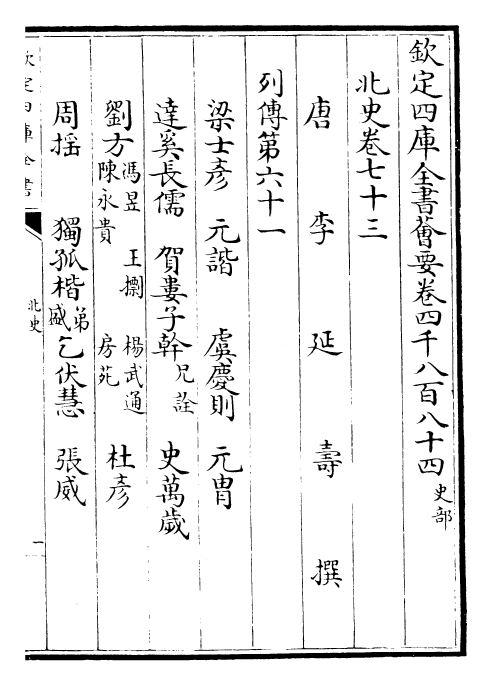 欽定四庫全書薈要卷四千八百八十四 史部
北史卷七十三
唐 李 延 壽 撰
列傳第六十一
梁士彥 元諧 虞慶則 元胄
達奚長儒 賀婁子幹 兄詮 史萬歲
劉方 馮昱 王㩧 楊武通 陳永貴 房兆 杜彥
周揺 獨孤楷 弟盛 乞伏慧 張威
欽定四庫全書
北史
一